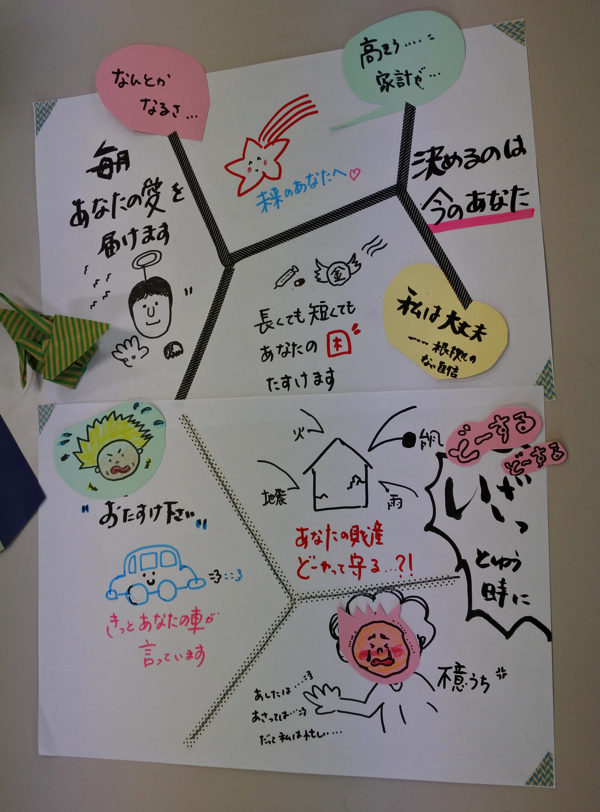 なんとか
なるさ…
高そう……
家計が…
毎月
あなたの愛を
届けます
未来のあなたへ♡
決めるのは
今のあなた
金
長くても短くても
あなたの
たすけます
私は大丈夫
根拠の
ない自信
おたすけ下さい
きっとあなたの車が
言っています
火
地震
雨
あなたの財産
どーやって守る…?!
どーする
どーする
いざっ
とゆう
時に
不意うち
あしたは…
あさっては…
だって私は忙しい…